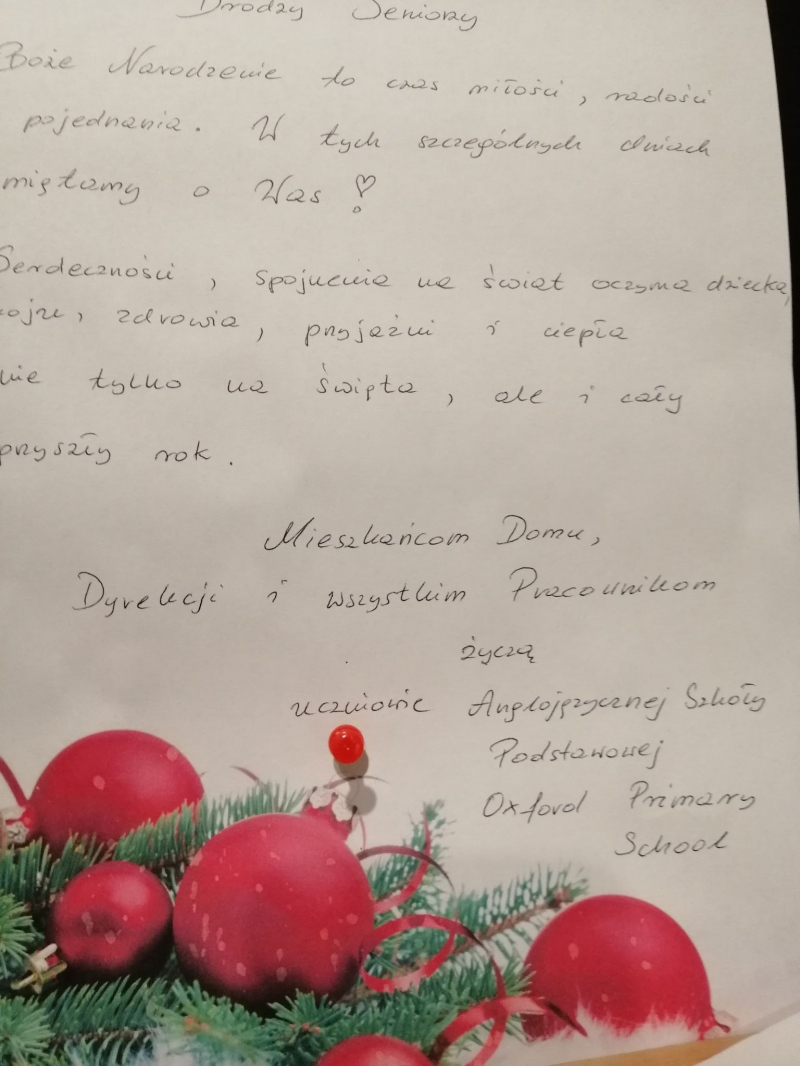 Drodzy Seniorzy
Boże Narodzenie to czas miłości, radości
pojednania. W tych szczególnych dniach
miętamy o Was
Serdeczności, spojrzenia na świat oczyma dziecka,
zdrowia, przyjaźni i ciepła
nie tylko na święta, ale i cały
przyszły rok.
Mieszkańcom Domu,
Dyrekcji i wszystkim Pracownikom
życzą
uczniowie Anglojęzycznej Szkoły
Podstawowej
Oxford Primary
School